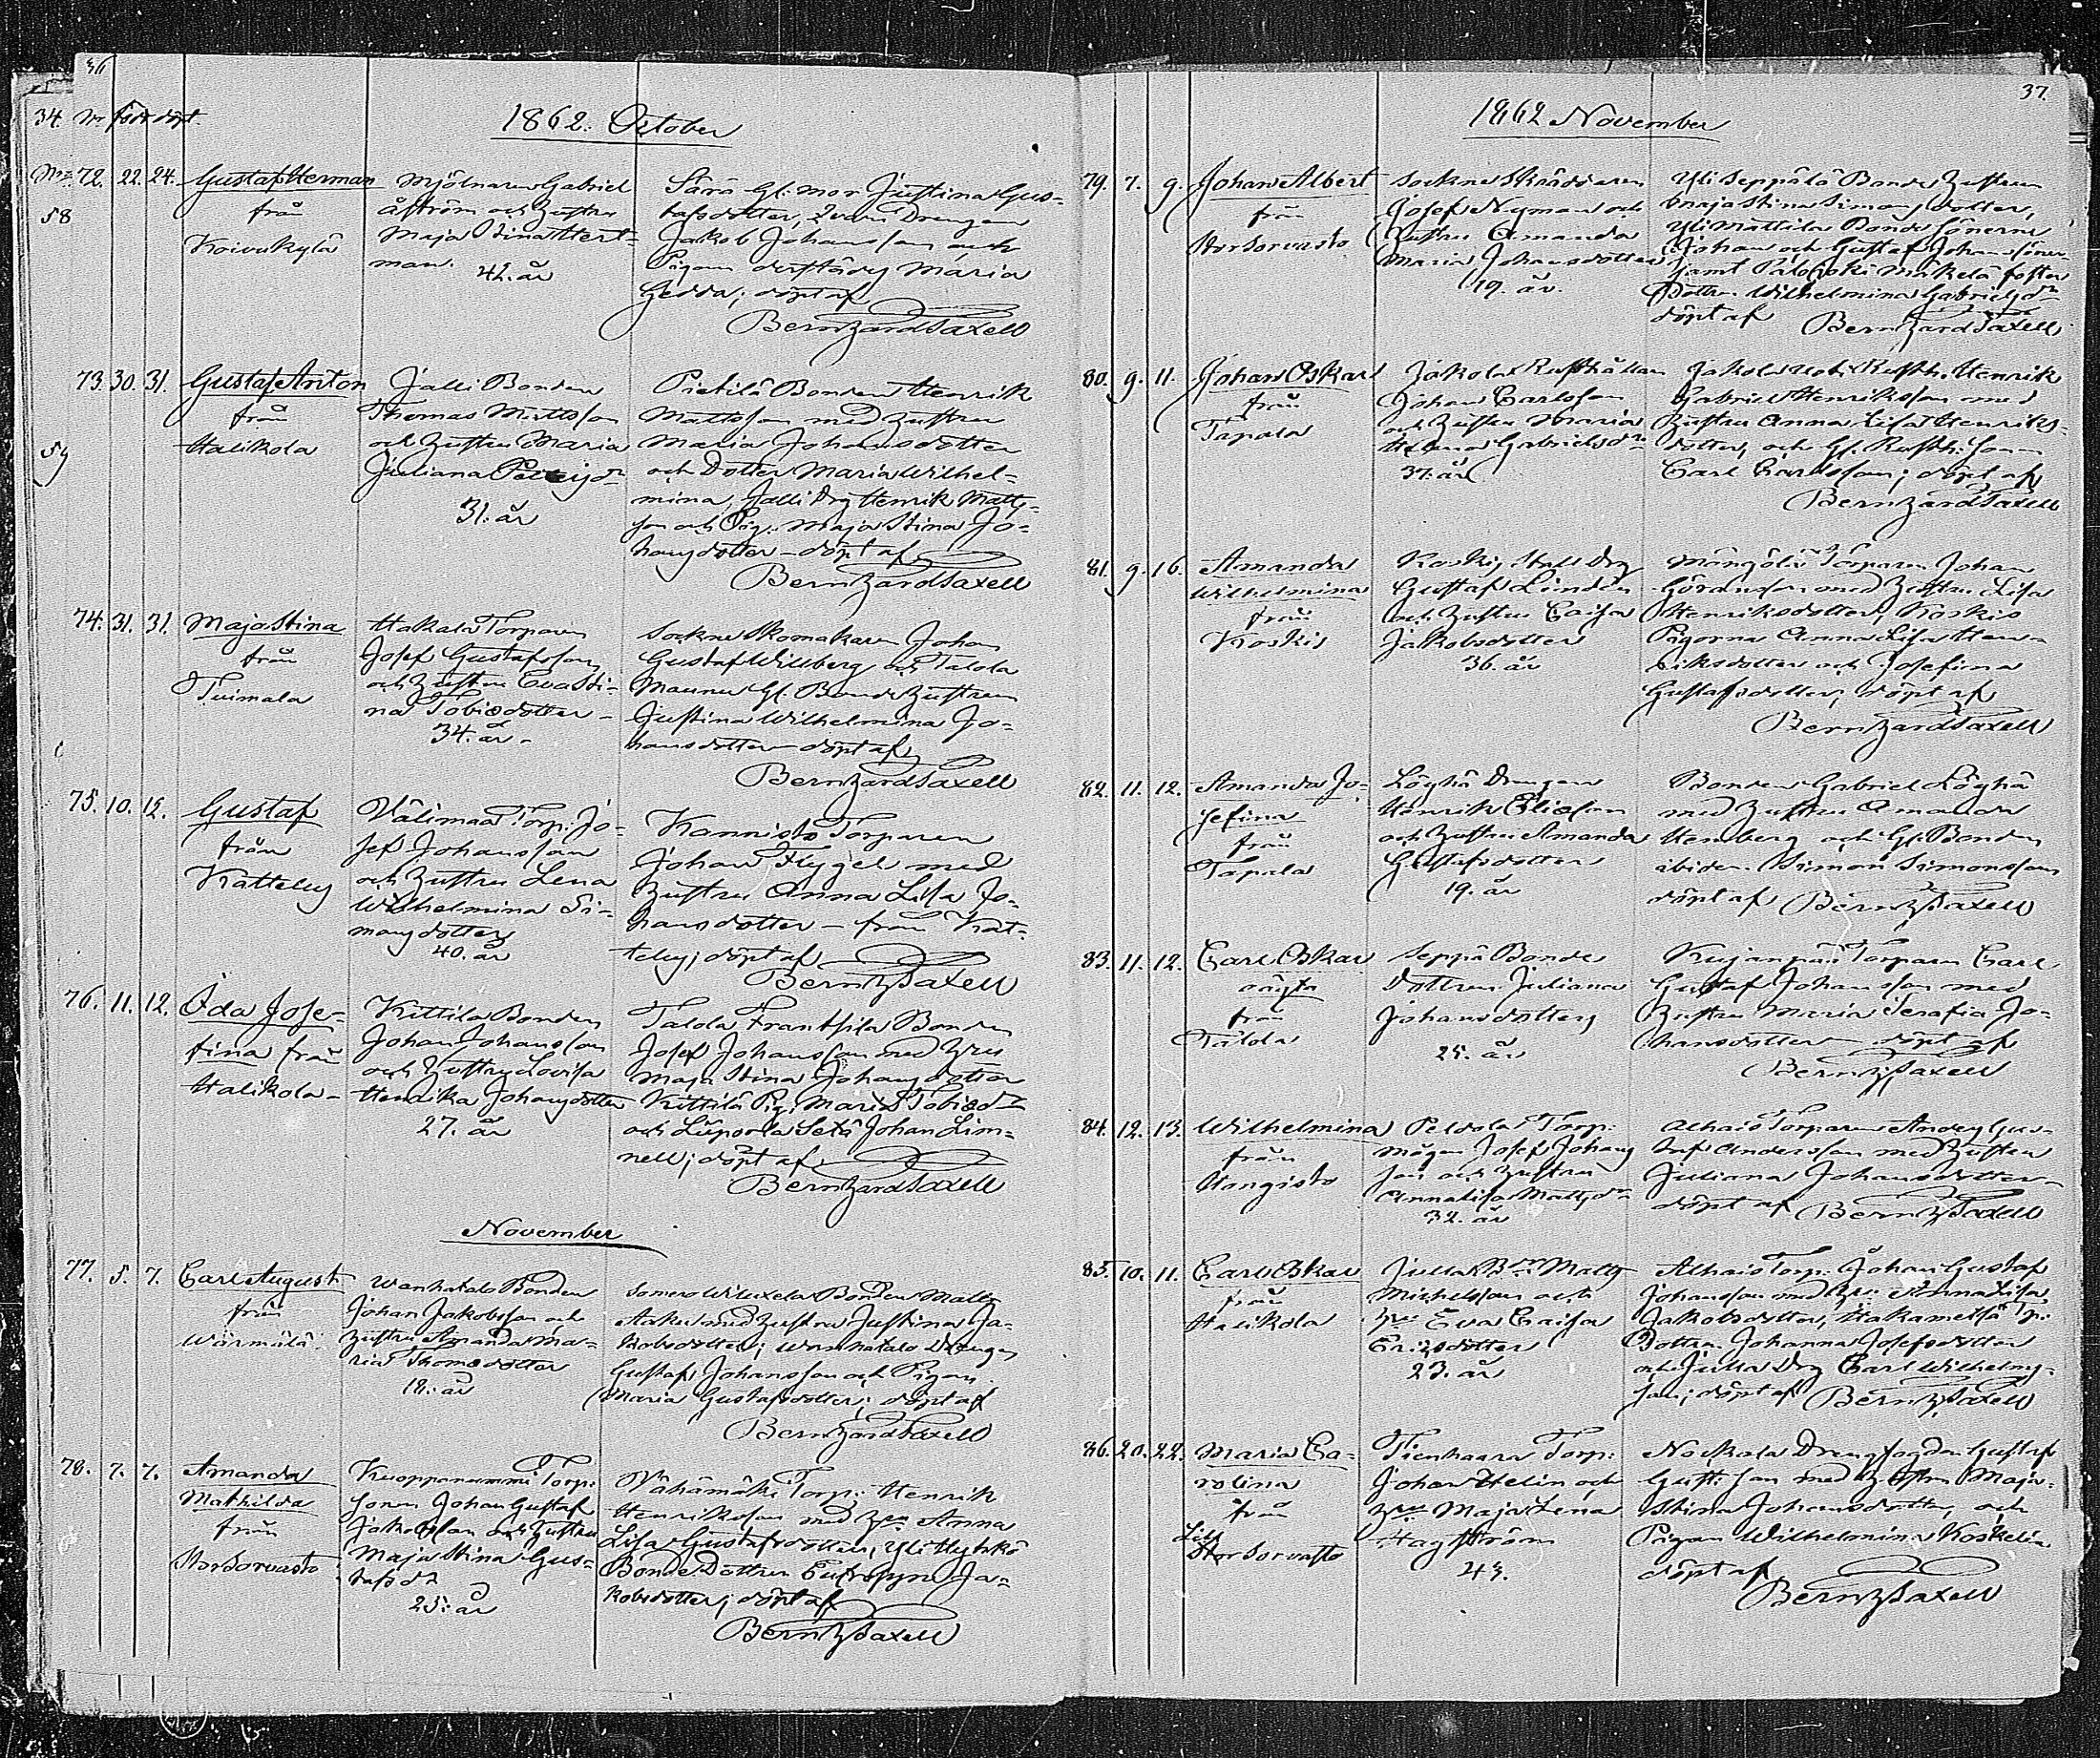 36
34. No född döpt.
1862. October
No 72. 22. 24.
58
Gustaf Herman
från
Koivukylä
Mjölnaren Gabriel
Åström och hustru
Maja Stina Hert-
man.
42. år
Sara Gl. mor Justina Gus-
tafsdotter, Drengen
Jakob Johansson och
Pigan derstädes Maria
Hedda; döpt af
Berntzard Saxell
73. 30. 31.
59
Gustaf Anton
från
Halikola
Jalli Bonden
Thomas Mattsson
och hustru Maria
Juliana
31. år
Pietilä Bonden Henrik
Mattsson med hustru
Maria Johansdotter
och Dotter Maria Wilhel-
mina, Jalli Drg Henrik Matts-
son och Pig. Maja Stina Jo-
hansdotter – döpt af
Berntzard Saxell
74. 31. 31.
Maja Stina
från
Tuimala
Hakala Torparen
Josef Gustafsson
och hustru Eva Sti-
na Tobiædotter –
34. år –
Sockne Skomakaren Johan
Gustaf Willberg och Talola
Maunu Gl. Bonde hustrun
Justina Wilhelmina Jo-
hansdotter – döpt af
Berntzard Saxell
75. 10. 12.
Gustaf
från
Katteley
Välimaa Torp. Jo-
sef Johansson
och hustru Lena
Wilhelmina Si-
monsdotter
40. år
Kannisto Torparen
Johan Flygel med
hustru Anna Lisa Jo-
hansdotter – från Kat-
teley; döpt af
Bernh Saxell
76. 11. 12.
Oda Jose-
fina från
Halikola –
Kittilä Bonden
Johan Johansson
och hustru Lovisa
Henrika Johansdotter
27. år
Talola Frantsila Bonden
Josef Johansson med hru
Maja Stina Johansdotter
Kittilä Pig. Maria Tobiæd:r
och Johan Lim-
nell; döpt af
Berntzard Saxell
November
77. 5. 7.
Carl August
från
Wärmälä
Wanhatalo Bonden
Johan Jakobsson och
hustru Amanda Ma-
ria Thomædotter
18. år
Somero Bonden Matts
med hustru Justina Ja-
kobsdotter; Wanhatalo Drengen
Gustaf Johansson och Pigan
Maria Gustafsdotter; döpt af
Berntzard Saxell
78. 7. 7.
Amanda
Mathilda
från
Storsorvasto
Kuoppanummi Torp:
sonen Johan Gustaf
Jakobsson och hustru
Maja Stina Gus-
tafsdr
25. år
Vähämäki Torp: Henrik
Henriksson med hru Anna
Lisa Gustafsdotter, Yli
Bonde Dottren Eufrosyne Ja-
kobsdotter; döpt af
Bernh Saxell
37.
1862 November
79. 7. 9.
Johan Albert
från
Storsorvasto
Sockne Skräddaren
Josef Nyman och
hustru Amanda
Maria Johansdotter
19. år.
Yli Seppälä Bonde hustrun
Maja Stina Simonsdotter,
Yli Mattila Bonde Sönerne
Johan och Gustaf Johanssöner
samt Palojoki Mäkelä foster
Dottren Wilhelmina Gabrielsdr
döpt af Berntzard Saxell
80. 9. 11.
Johan Oskar
från
Tapala
Jakola Rusthållaren
Johan Carlsson
och hustru Maria
Helena Gabrielsdr
37. år
Jakola Rusth. Henrik
Gabriel Henriksson med
hustru Anna Lisa Henriks-
dotter, och Gl. Rusth. son
Carl Carlsson; döpt af
Berntzard Saxell
81. 9. 16.
Amanda
Wilhelmina
från
Koskis
Koskis Stall Drg
Gustaf Lindén
och hustru Caisa
Jakobsdotter
36. år
Torparen Johan
Göransson med hustru Lisa
Henriksdotter, Koskis
Pigorna Anna Lisa Hen-
riksdotter och Josefina
Gustafsdotter; döpt af
Berntzard Saxell
82. 11. 12.
Amanda Jo-
sefina
från
Tapala
Löyhä Drengen
Henrik Eliæson
och hustru Amanda
Gustafsdotter
19. år
Bonden Gabriel Löyhä
med hustru Amanda
Hemberg och Gl. Bonden
Simon Simonsson
döpt af Bernh Saxell
83. 11. 12.
Carl Oskar
oägta
från
Talola
Seppä Bonde
Dottren Juliana
Johansdotter
25. år
Kujanpää Torparen Carl
Gustaf Johansson med
hustru Maria Serafia Jo-
hansdotter – döpt af
Bernh Saxell
84. 12. 13.
Wilhelmina
från
Hangisto
Peldola Torp:
mågen Josef Johans-
son och hustru
Anna Lisa Mattsdr
32. år
Alhais Torparen Anders Gus-
taf Andersson med hustru
Juliana Johansdotter –
döpt af Bernh Saxell
85. 10. 11.
Carl Oskar
från
Halikola
Julla Bn Matts
Michelsson och
hru Eva Caisa
Ericsdotter
23. år
Alhais Torp: Johan Gustaf
Johansson med hru Anna Lisa
Jakobsdotter, Hakametsä Tp:
Dottren Johanna Josefsdotter
och Julla Drg Carl Wilhelms-
son; döpt af Bernh Saxell
86. 20. 22.
Maria Ca-
rolina
från
Storsorvasto
Tienhaara Torp:
Johan Helin och
hru Maja Lena
Hagström
43.
Nockala Drengfogden Gustaf
Gust: son med hustru Maja
Stina Johansdotter, och
Pigan Wilhelmina Koskelin
döpt af
Bernh Saxell